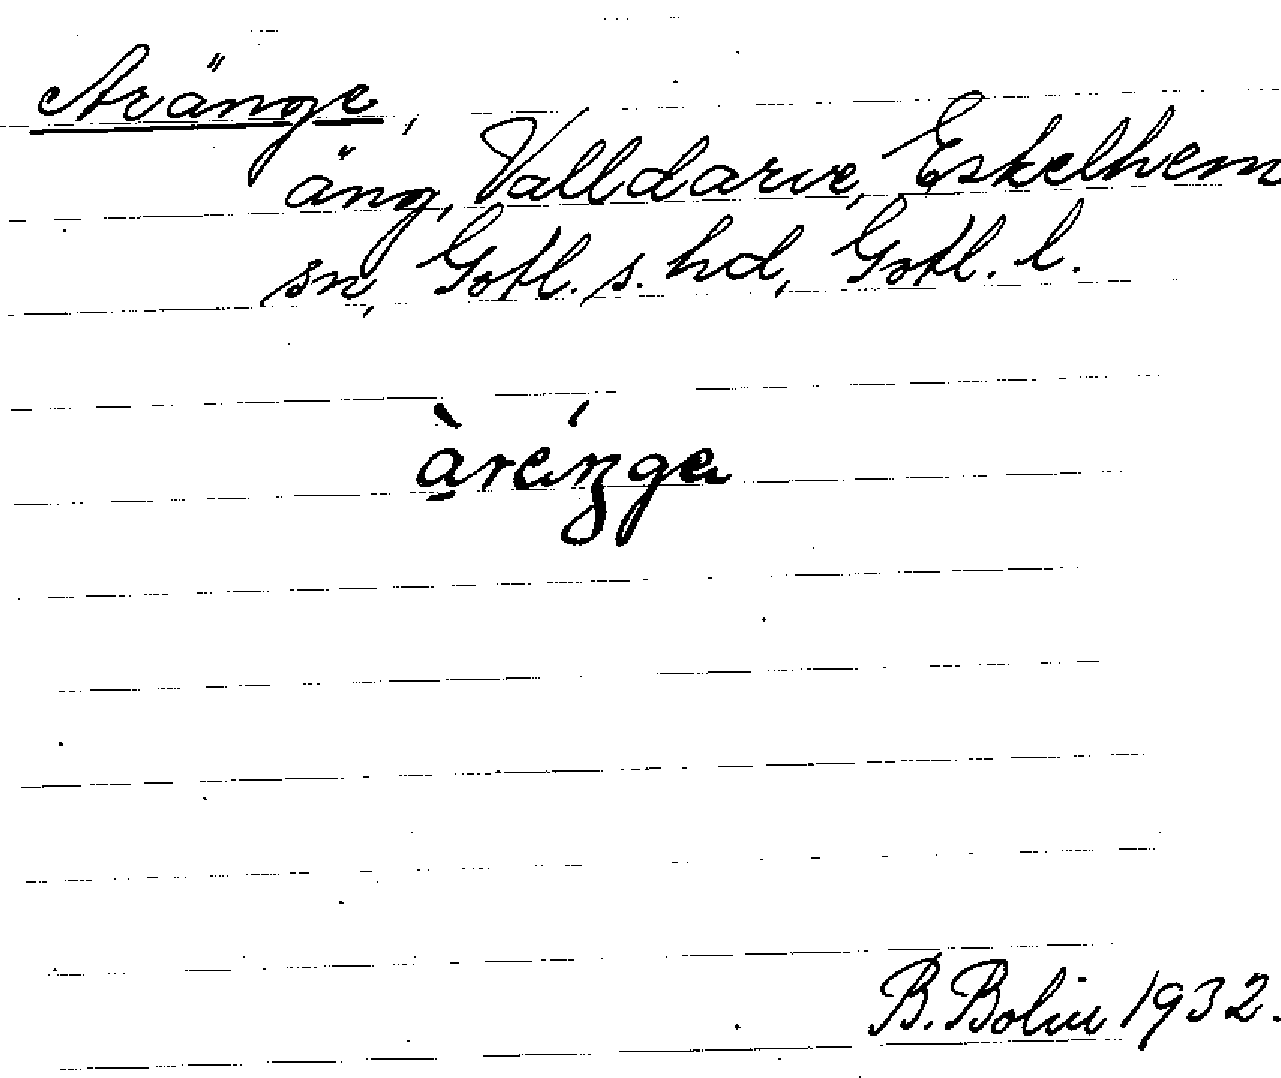 Aränge,
äng, Valldarve, Eskelhem
sn, Gotl. s. hd, Gotl. l.
àréŋge
B. Bolin 1932.